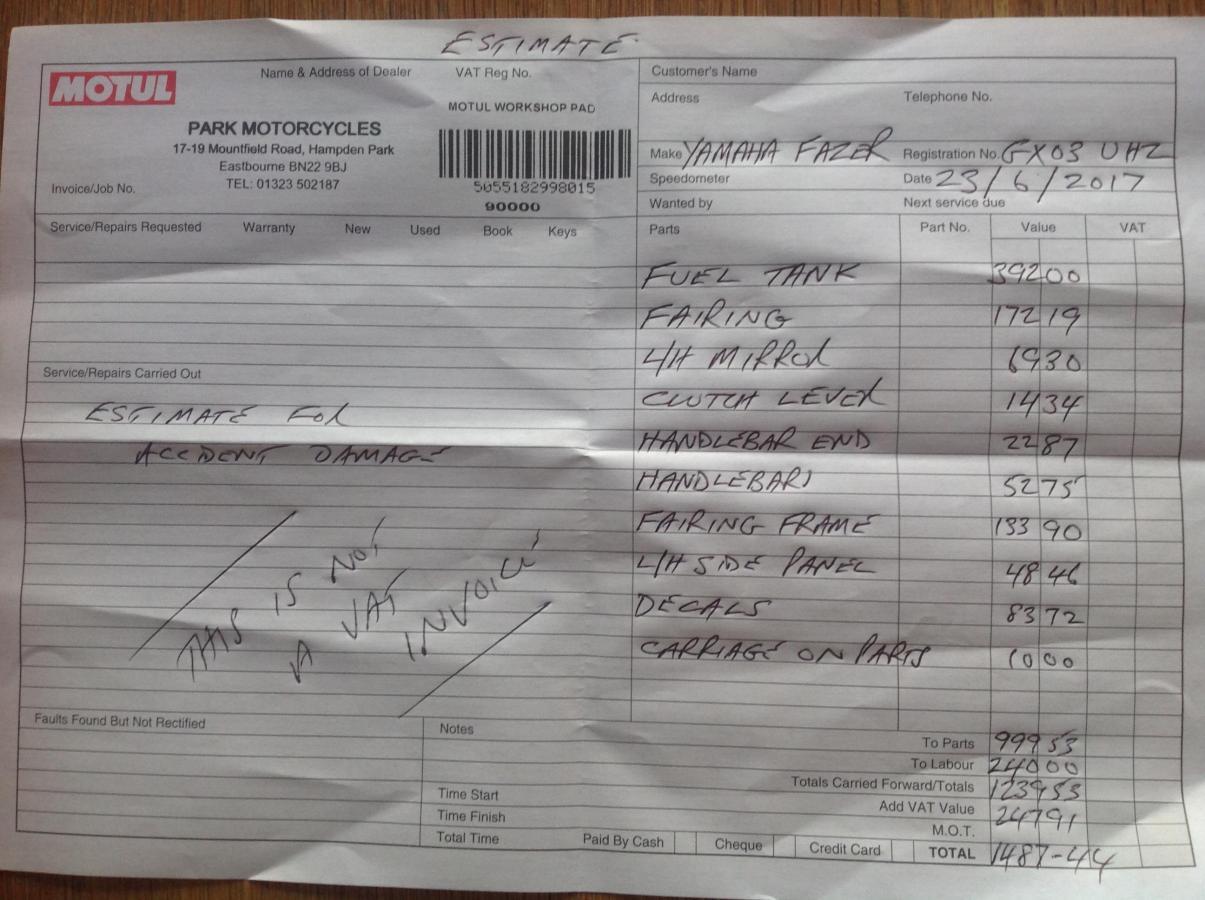 ESTIMATE
MOTUL
Name & Address of Dealer
VAT Reg No.
MOTUL WORKSHOP PAD
PARK MOTORCYCLES
17-19 Mountfield Road, Hampden Park
Eastbourne BN22 9BJ
TEL: 01323 502187
5055182998015
90000
Invoice/Job No.
Customer's Name
Address Telephone No.
Make YAMAHA FAZER Registration No. GX03 UHZ
Speedometer Date 23/6/2017
Wanted by Next service due
Service/Repairs Requested Warranty New Used Book Keys
Parts Part No. Value VAT
FUEL TANK 392 00
FAIRING 172 19
L/H MIRROR 69 30
CLUTCH LEVER 14 34
HANDLEBAR END 22 87
HANDLEBARS 52 75
FAIRING FRAME 133 90
L/H SIDE PANEL 48 46
DECALS 83 72
CARRIAGE ON PARTS 10 00
Service/Repairs Carried Out
ESTIMATE FOR
ACCIDENT DAMAGE
THIS IS NOT
A VAT
INVOICE
Faults Found But Not Rectified
Notes
Time Start
Time Finish
Total Time
To Parts 999 53
To Labour 240 00
Totals Carried Forward/Totals 1239 53
Add VAT Value 247 91
M.O.T.
Paid By Cash Cheque Credit Card TOTAL 1487-44